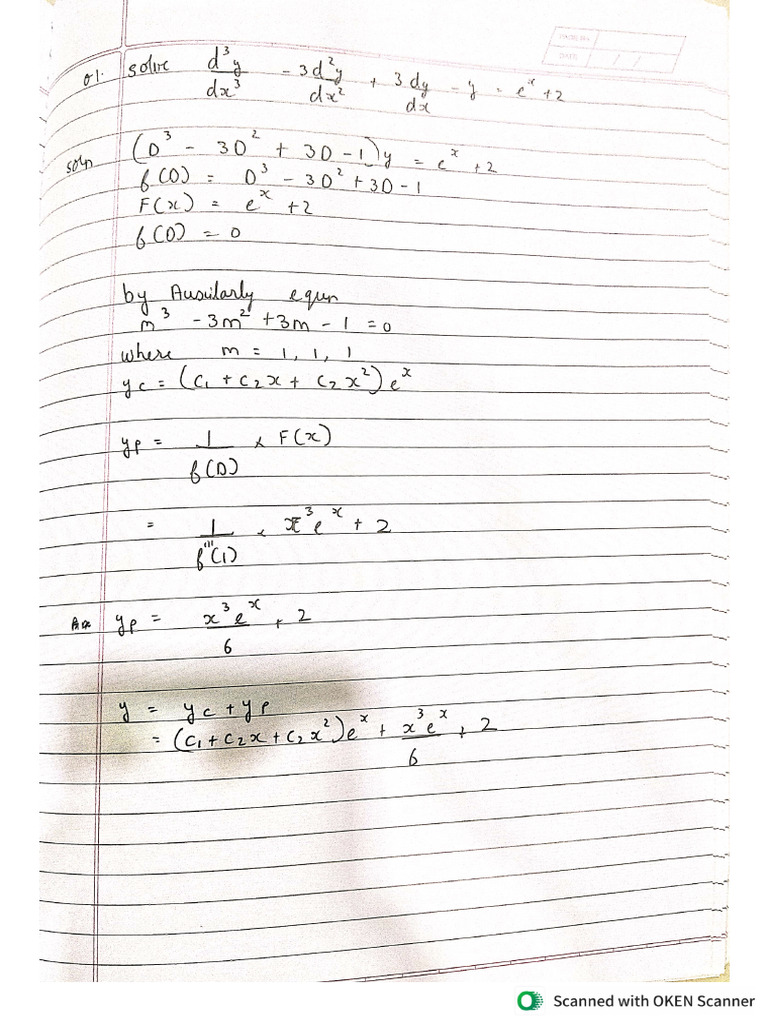 PAGE No.
DATE / /
01. solve d³y/dx³ - 3d²y/dx² + 3dy/dx - y = eˣ + 2
soln (D³ - 3D² + 3D - 1)y = eˣ + 2
f(D) = D³ - 3D² + 3D - 1
F(x) = eˣ + 2
f(D) = 0
by Auxilarly equn
m³ - 3m² + 3m - 1 = 0
where m = 1, 1, 1
yc = (c₁ + c₂x + c₂x²)eˣ
yp = 1/f(D) × F(x)
= 1/f'''(1) × x³eˣ + 2
yp = x³eˣ/6 + 2
y = yc + yp
= (c₁ + c₂x + c₂x²)eˣ + x³eˣ/6 + 2
Scanned with OKEN Scanner